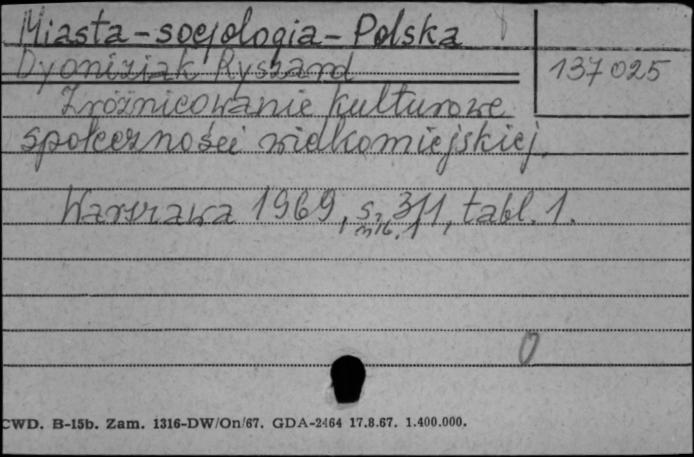 Miasta - socjologia - Polska
Dyoniziak Ryszard
137025
Zróżnicowanie kulturowe
społeczności wielkomiejskiej.
Warszawa 1969, s. 311, tabl. 1.
0
CWD. B-15b. Zam. 1316-DW/On/67. GDA-2464 17.8.67. 1.400.000.